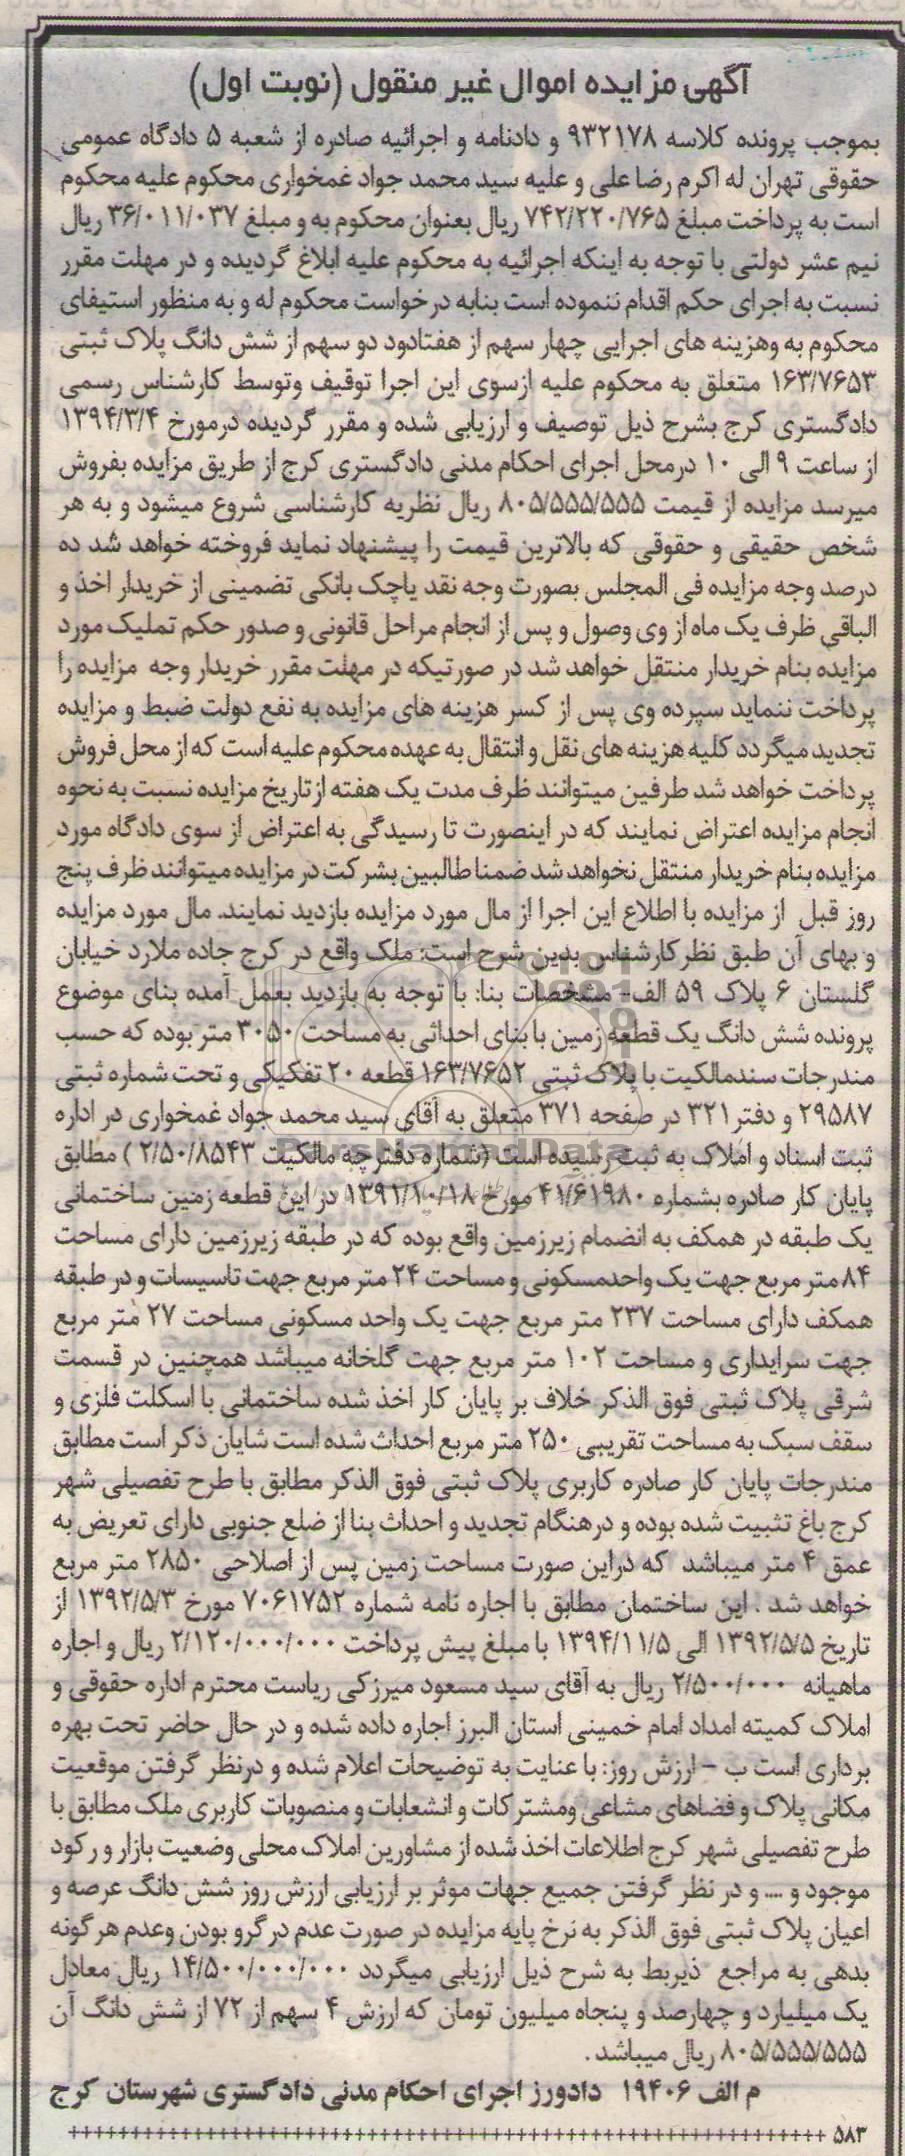 آگهی مزایده اموال غیر منقول (نوبت اول)
بموجب پرونده کلاسه ۹۳۲۱۷۸ و دادنامه و اجرائیه صادره از شعبه ۵ دادگاه عمومی
حقوقی تهران له اکرم رضا علی و علیه سید محمد جواد غمخواری محکوم علیه محکوم
است به پرداخت مبلغ ۷۴۲/۲۲۰/۷۶۵ ریال بعنوان محکوم به و مبلغ ۳۶/۰۱۱/۰۳۷ ریال
نیم عشر دولتی با توجه به اینکه اجرائیه به محکوم علیه ابلاغ گردیده و در مهلت مقرر
نسبت به اجرای حکم اقدام ننموده است بنابه درخواست محکوم له و به منظور استیفای
محکوم به وهزینه های اجرایی چهار سهم از هفتادود دو سهم از شش دانگ پلاک ثبتی
۱۶۳/۷۶۵۳ متعلق به محکوم علیه ازسوی این اجرا توقیف وتوسط کارشناس رسمی
دادگستری کرج بشرح ذیل توصیف و ارزیابی شده و مقرر گردیده درمورخ ۱۳۹۴/۳/۴
از ساعت ۹ الی ۱۰ درمحل اجرای احکام مدنی دادگستری کرج از طریق مزایده بفروش
میرسد مزایده از قیمت ۸۰۵/۵۵۵/۵۵۵ ریال نظریه کارشناسی شروع میشود و به هر
شخص حقیقی و حقوقی که بالاترین قیمت را پیشنهاد نماید فروخته خواهد شد ده
درصد وجه مزایده فی المجلس بصورت وجه نقد یاچک بانکی تضمینی از خریدار اخذ و
الباقی ظرف یک ماه از وی وصول و پس از انجام مراحل قانونی و صدور حکم تملیک مورد
مزایده بنام خریدار منتقل خواهد شد در صورتیکه در مهلت مقرر خریدار وجه مزایده را
پرداخت ننماید سپرده وی پس از کسر هزینه های مزایده به نفع دولت ضبط و مزایده
تجدید میگردد کلیه هزینه های نقل و انتقال به عهده محکوم علیه است که از محل فروش
پرداخت خواهد شد طرفین میتوانند ظرف مدت یک هفته ازتاریخ مزایده نسبت به نحوه
انجام مزایده اعتراض نمایند که در اینصورت تا رسیدگی به اعتراض از سوی دادگاه مورد
مزایده بنام خریدار منتقل نخواهد شد ضمنا طالبین بشرکت در مزایده میتوانند ظرف پنج
روز قبل از مزایده با اطلاع این اجرا از مال مورد مزایده بازدید نمایند. مال مورد مزایده
و بهای آن طبق نظر کارشناس بدین شرح است: ملک واقع در کرج جاده ملارد خیابان
گلستان ۶ پلاک ۵۹ الف- مشخصات بنا: با توجه به بازدید بعمل آمده بنای موضوع
پرونده شش دانگ یک قطعه زمین با بنای احداثی به مساحت ۳۰۵۰ متر بوده که حسب
مندرجات سندمالکیت با پلاک ثبتی ۱۶۳/۷۶۵۲ قطعه ۲۰ تفکیکی و تحت شماره ثبتی
۲۹۵۸۷ و دفتر ۳۲۱ در صفحه ۳۷۱ متعلق به آقای سید محمد جواد غمخواری در اداره
ثبت اسناد و املاک به ثبت رسیده است (شماره دفترچه مالکیت ۲/۵۰/۸۵۴۳) مطابق
پایان کار صادره بشماره ۴۱/۶۱۹۸۰ مورخ ۱۳۹۱/۱۰/۱۸ در این قطعه زمین ساختمانی
یک طبقه در همکف به انضمام زیرزمین واقع بوده که در طبقه زیرزمین دارای مساحت
۸۴ متر مربع جهت یک واحدمسکونی و مساحت ۲۴ متر مربع جهت تاسیسات و در طبقه
همکف دارای مساحت ۲۳۷ متر مربع جهت یک واحد مسکونی مساحت ۲۷ متر مربع
جهت سرایداری و مساحت ۱۰۲ متر مربع جهت گلخانه میباشد همچنین در قسمت
شرقی پلاک ثبتی فوق الذکر خلاف بر پایان کار اخذ شده ساختمانی با اسکلت فلزی و
سقف سبک به مساحت تقریبی ۲۵۰ متر مربع احداث شده است شایان ذکر است مطابق
مندرجات پایان کار صادره کاربری پلاک ثبتی فوق الذکر مطابق با طرح تفصیلی شهر
کرج باغ تثبیت شده بوده و درهنگام تجدید و احداث بنا از ضلع جنوبی دارای تعریض به
عمق ۴ متر میباشد که دراین صورت مساحت زمین پس از اصلاحی ۲۸۵۰ متر مربع
خواهد شد . این ساختمان مطابق با اجاره نامه شماره ۷۰۶۱۷۵۲ مورخ ۱۳۹۲/۵/۳ از
تاریخ ۱۳۹۲/۵/۵ الی ۱۳۹۴/۱۱/۵ با مبلغ پیش پرداخت ۲/۱۲۰/۰۰۰/۰۰۰ ریال و اجاره
ماهیانه ۲/۵۰۰/۰۰۰ ریال به آقای سید مسعود میرزکی ریاست محترم اداره حقوقی و
املاک کمیته امداد امام خمینی استان البرز اجاره داده شده و در حال حاضر تحت بهره
برداری است ب – ارزش روز: با عنایت به توضیحات اعلام شده و درنظر گرفتن موقعیت
مکانی پلاک و فضاهای مشاعی ومشترکات و انشعابات و منصوبات کاربری ملک مطابق با
طرح تفصیلی شهر کرج اطلاعات اخذ شده از مشاورین املاک محلی وضعیت بازار و رکود
موجود و .... و در نظر گرفتن جمیع جهات موثر بر ارزیابی ارزش روز شش دانگ عرصه و
اعیان پلاک ثبتی فوق الذکر به نرخ پایه مزایده در صورت عدم در گرو بودن وعدم هر گونه
بدهی به مراجع ذیربط به شرح ذیل ارزیابی میگردد ۱۴/۵۰۰/۰۰۰/۰۰۰ ریال معادل
یک میلیارد و چهارصد و پنجاه میلیون تومان که ارزش ۴ سهم از ۷۲ از شش دانگ آن
۸۰۵/۵۵۵/۵۵۵ ریال میباشد .
م الف ۱۹۴۰۶ دادورز اجرای احکام مدنی دادگستری شهرستان کرج
۵۸۳
ParsNamadData